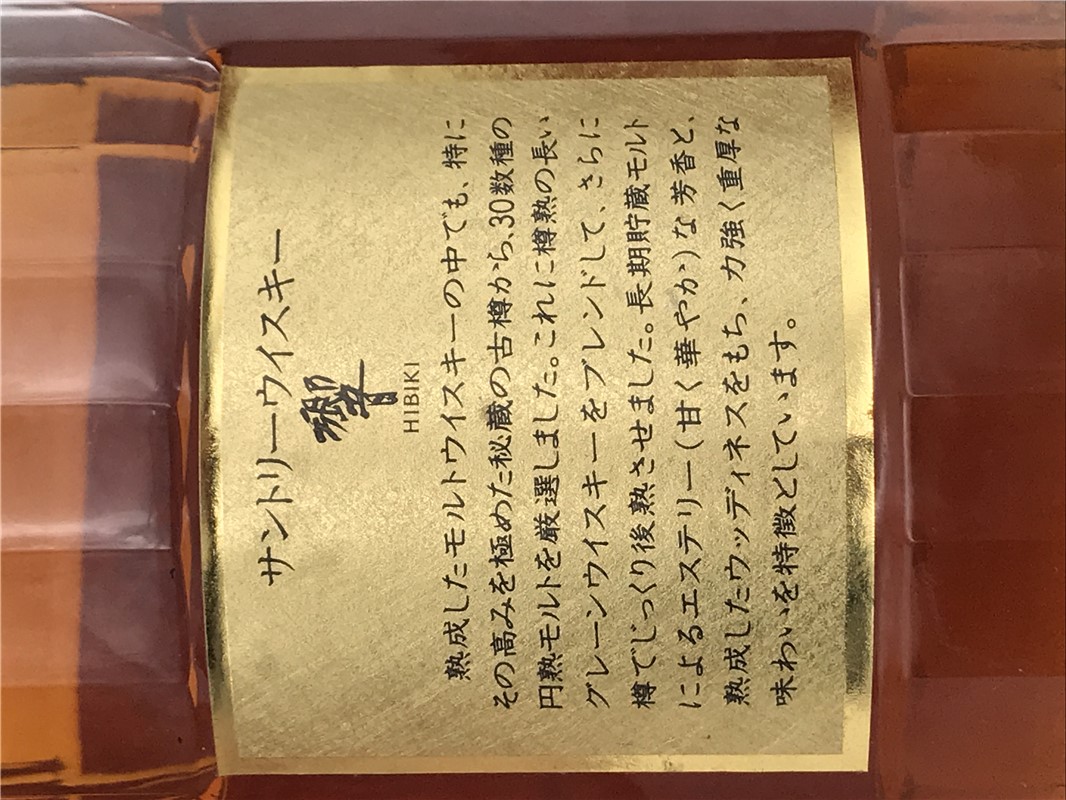 サントリーウイスキー
響
HIBIKI
熟成したモルトウイスキーの中でも、特に
その高みを極めた秘蔵の古樽から、30数種の
円熟モルトを厳選しました。これに樽熟の長い
グレーンウイスキーをブレンドして、さらに
樽でじっくり後熟させました。長期貯蔵モルト
によるエステリー(甘く華やか)な芳香と、
熟成したウッディネスをもち、力強く重厚な
味わいを特徴としています。